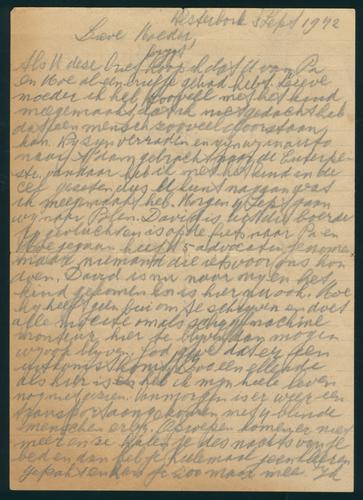 Westerbork 3 Sept 1942
Lieve Moeder,
jongs!
Als U deze brief hoop ik dat U van Pa
en Moe al een briefje gehad hebt. Lieve
moeder ik heb zooveel met het kind
meegemaakt dat ik niet gedacht heb
dat een mensch zooveel doorstaan
kan. Wij zijn verraden en zijn wij in auto
naar A'dam gebracht naar de Euterpe-
str. van daar heb ik met het kind in de
cel gezeten dus U kunt nagaan wat
ik meegemaakt heb. Morgen 4 Sept gaan
wij naar Polen. David is uit die boerderij
gevlucht en is op de fiets naar Pa en
Moe gegaan heeft 5 advocaten genomen
maar niemand die iets voor ons kon
doen. David is nu naar mij en het
kind gekomen en is hier nu ook. Moe
hij heeft geen bui om te schrijven en doet
alle moeite om als schrijfmachine
monteur hier te blijven dan mogen
wij ook blijven. God geve dat er een
uitkomst komt. Zoo een ellende
als hier is heb ik mijn heele leven
nog niet gezien. Van morgen is er weer een
transport aangekomen met blinde
menschen erbij. Oproepen komen er niet
meer en ze halen je des nachts van je
bed en dan heb je heelemaal geen kleeren
gepakt en kan je zoo maar mee